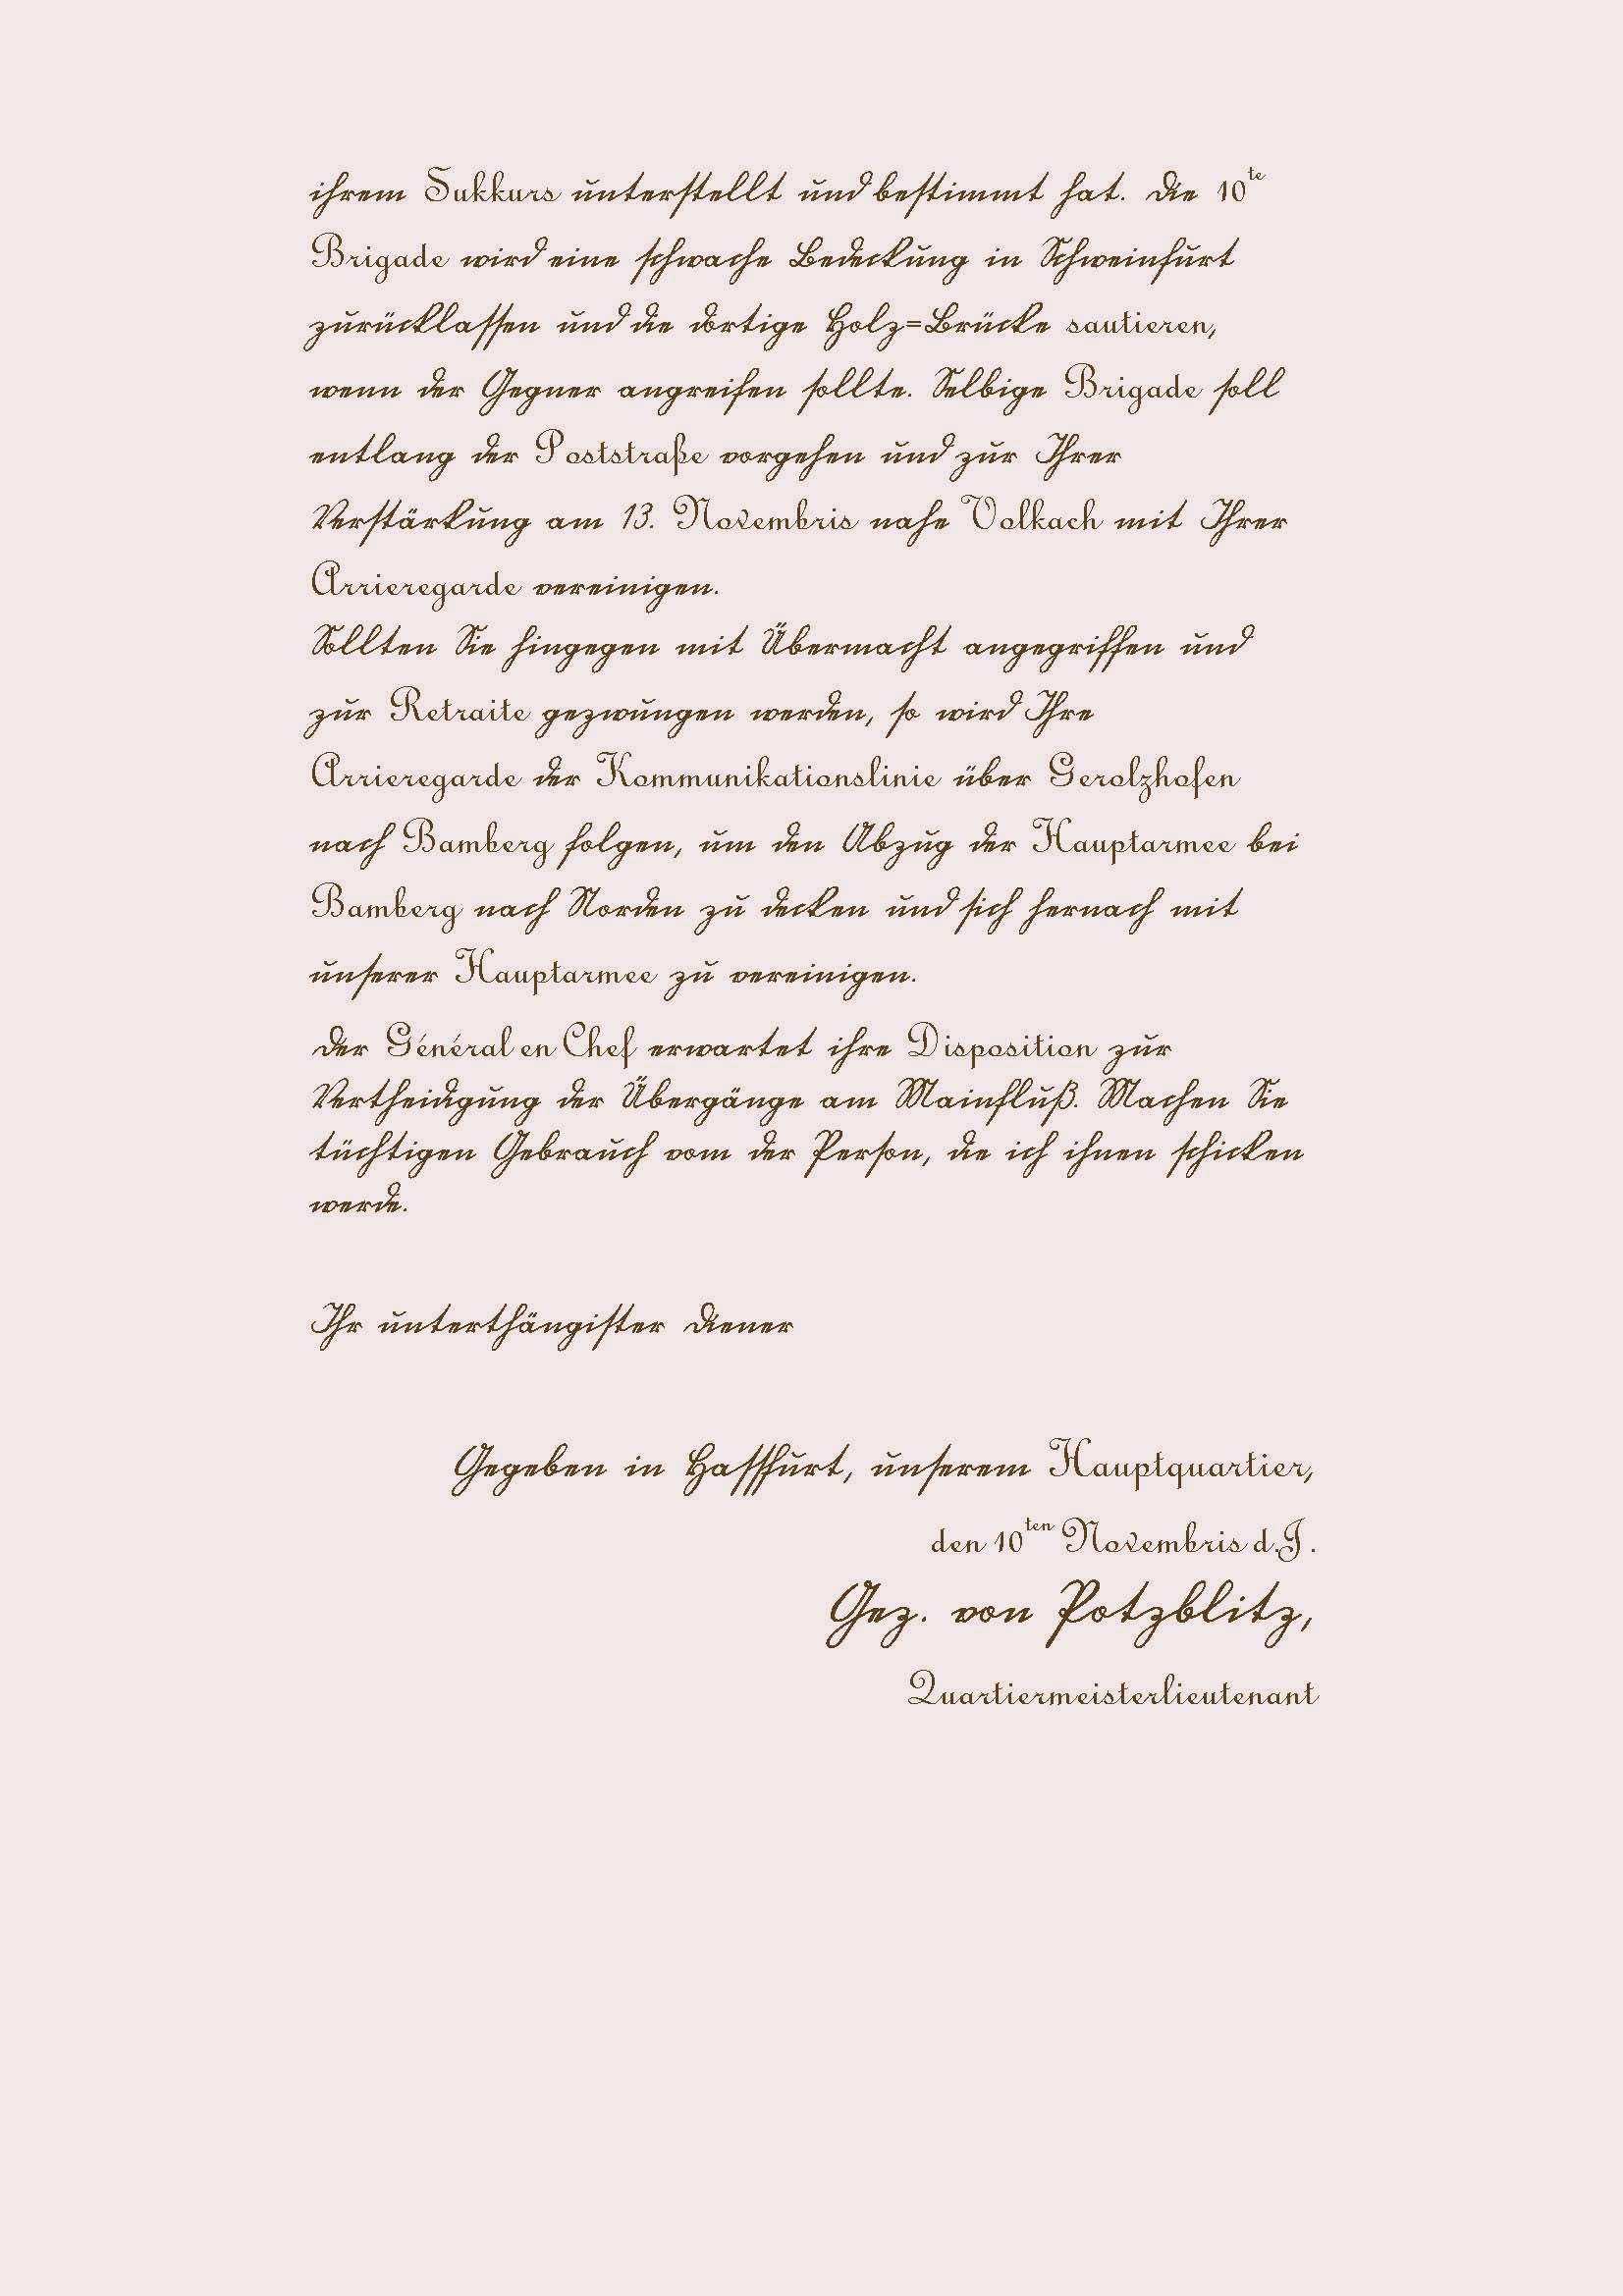 ihrem Sukkurs unterstellt und bestimmt hat. Die 10te
Brigade wird eine schwache Bedeckung in Schweinfurt
zurücklassen und die dortige Holz=Brücke sautieren,
wenn der Gegner angreifen sollte. Selbige Brigade soll
entlang der Poststraße vorgehen und zur Ihrer
Verstärkung am 13. Novembris nahe Volkach mit Ihrer
Arrieregarde vereinigen.
Sollten Sie hingegen mit Übermacht angegriffen und
zur Retraite gezwungen werden, so wird Ihre
Arrieregarde der Kommunikationslinie über Gerolzhofen
nach Bamberg folgen, um den Abzug der Hauptarmee bei
Bamberg nach Norden zu decken und sich hernach mit
unserer Hauptarmee zu vereinigen.
Der Général en Chef erwartet ihre Disposition zur
Vertheidigung der Übergänge am Mainfluß. Machen Sie
tüchtigen Gebrauch vom der Person, die ich ihnen schicken
werde.
Ihr unterthängister Diener
Gegeben in Hassfurt, unserem Hauptquartier,
den 10ten Novembris d.J.
Gez. von Potzblitz,
Quartiermeisterlieutenant